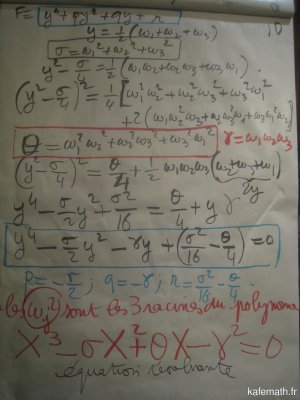 F = y⁴ + py² + qy + r
y = 1/2 (ω₁ + ω₂ + ω₃)
σ = ω₁² + ω₂² + ω₃²
y² - σ/4 = 1/2 (ω₁ω₂ + ω₂ω₃ + ω₃ω₁)
(y² - σ/4)² = 1/4 [ω₁²ω₂² + ω₂²ω₃² + ω₃²ω₁²
θ = ω₁²ω₂² + ω₂²ω₃² + ω₃²ω₁² γ = ω₁ω₂ω₃
(y² - σ/4)² = θ/4 + 1/2 ω₁ω₂ω₃ (ω₂ + ω₃ + ω₁)
2y
y⁴ - σ/2 y² + σ²/16 = θ/4 + y γ
y⁴ - σ/2 y² - γy + (σ²/16 - θ/4) = 0
p = -σ/2 ; q = -γ ; r = σ²/16 - θ/4
les (ωⱼ²) sont les 3 racines du polynome
X³ - σX² + θX - γ² = 0
équation résolvante
kafemath.fr